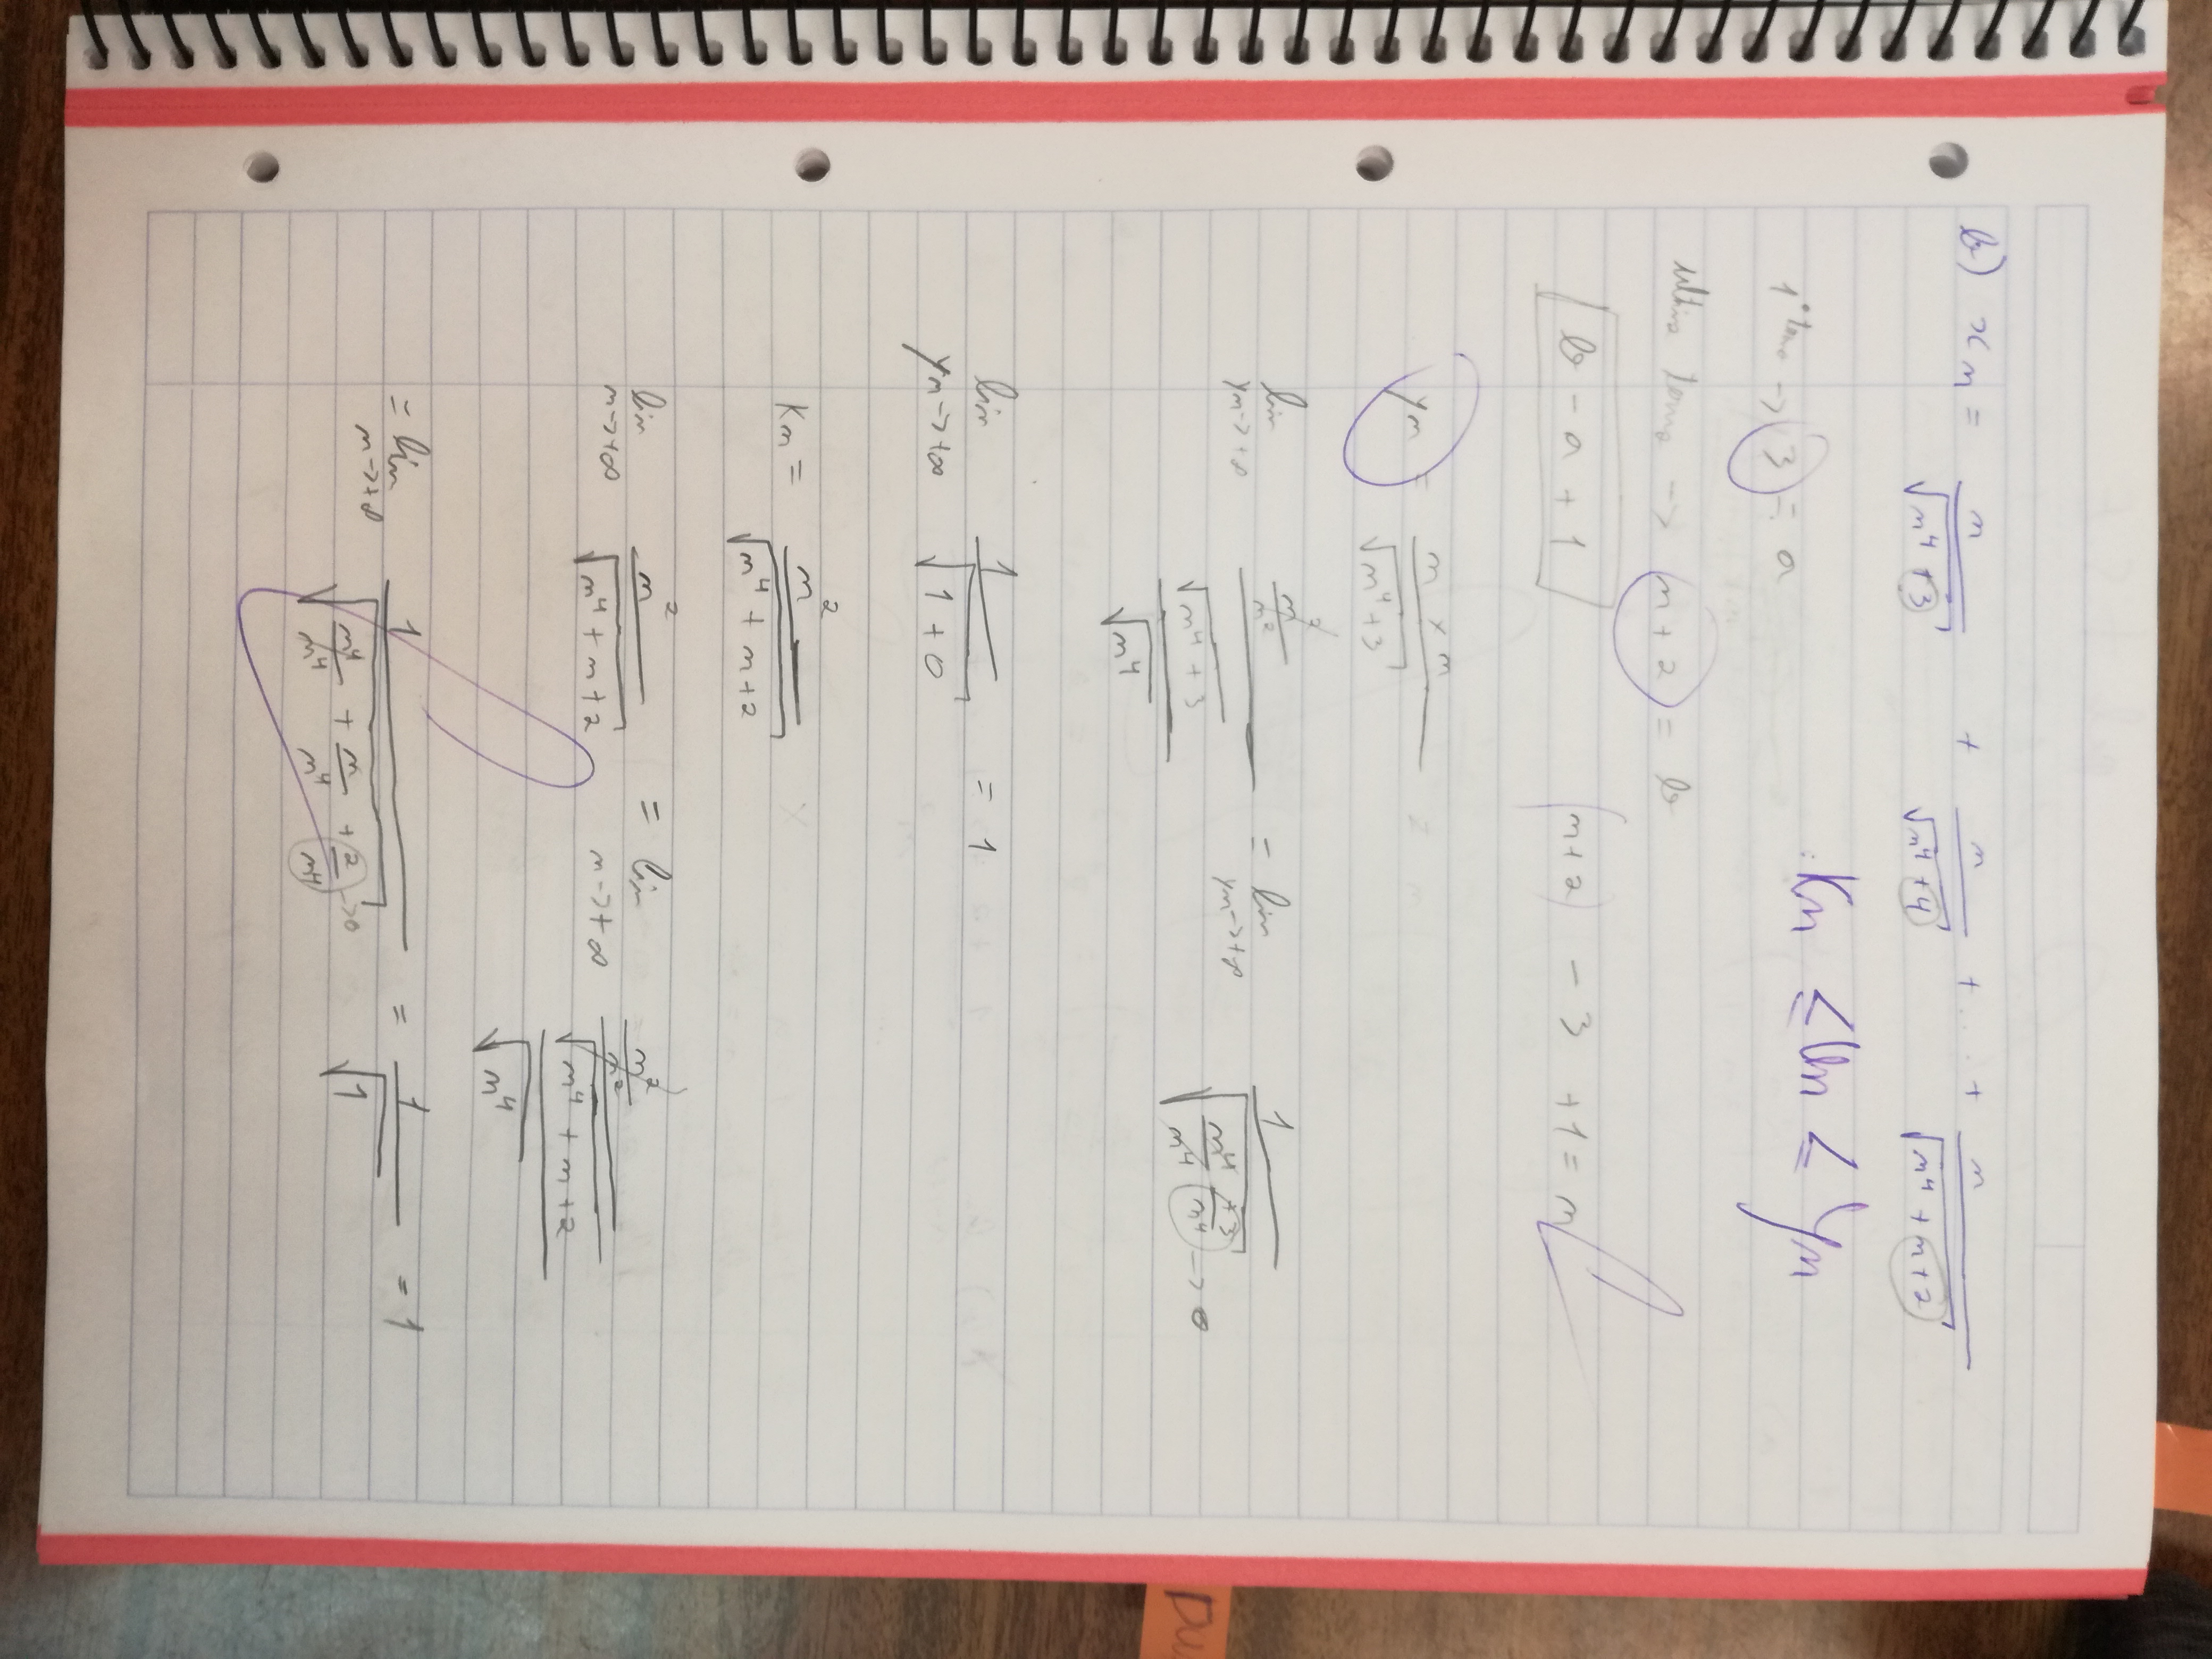 b) xn = n/√(n⁴+3) + n/√(n⁴+4) + .... + n/√(n⁴+n+2)
: kn ≤ un ≤ yn
1º termo -> 3 = a
último termo -> n+2 = b
b - a + 1 (n+2) - 3 + 1 = n
yn = n×n/√(n⁴+3)
lim yn->+∞ (n²/n²)/(√(n⁴+3)/√n⁴) = lim yn->+∞ 1/√(n⁴/n⁴ + 3/n⁴) -> 0
lim yn->+∞ 1/√(1+0) = 1
kn = n²/√(n⁴+n+2)
lim n->+∞ n²/√(n⁴+n+2) = lim n->+∞ (n²/n²)/(√(n⁴+n+2)/√n⁴)
= lim n->+∞ 1/√(n⁴/n⁴ + n/n⁴ + 2/n⁴) ->0 = 1/√1 = 1